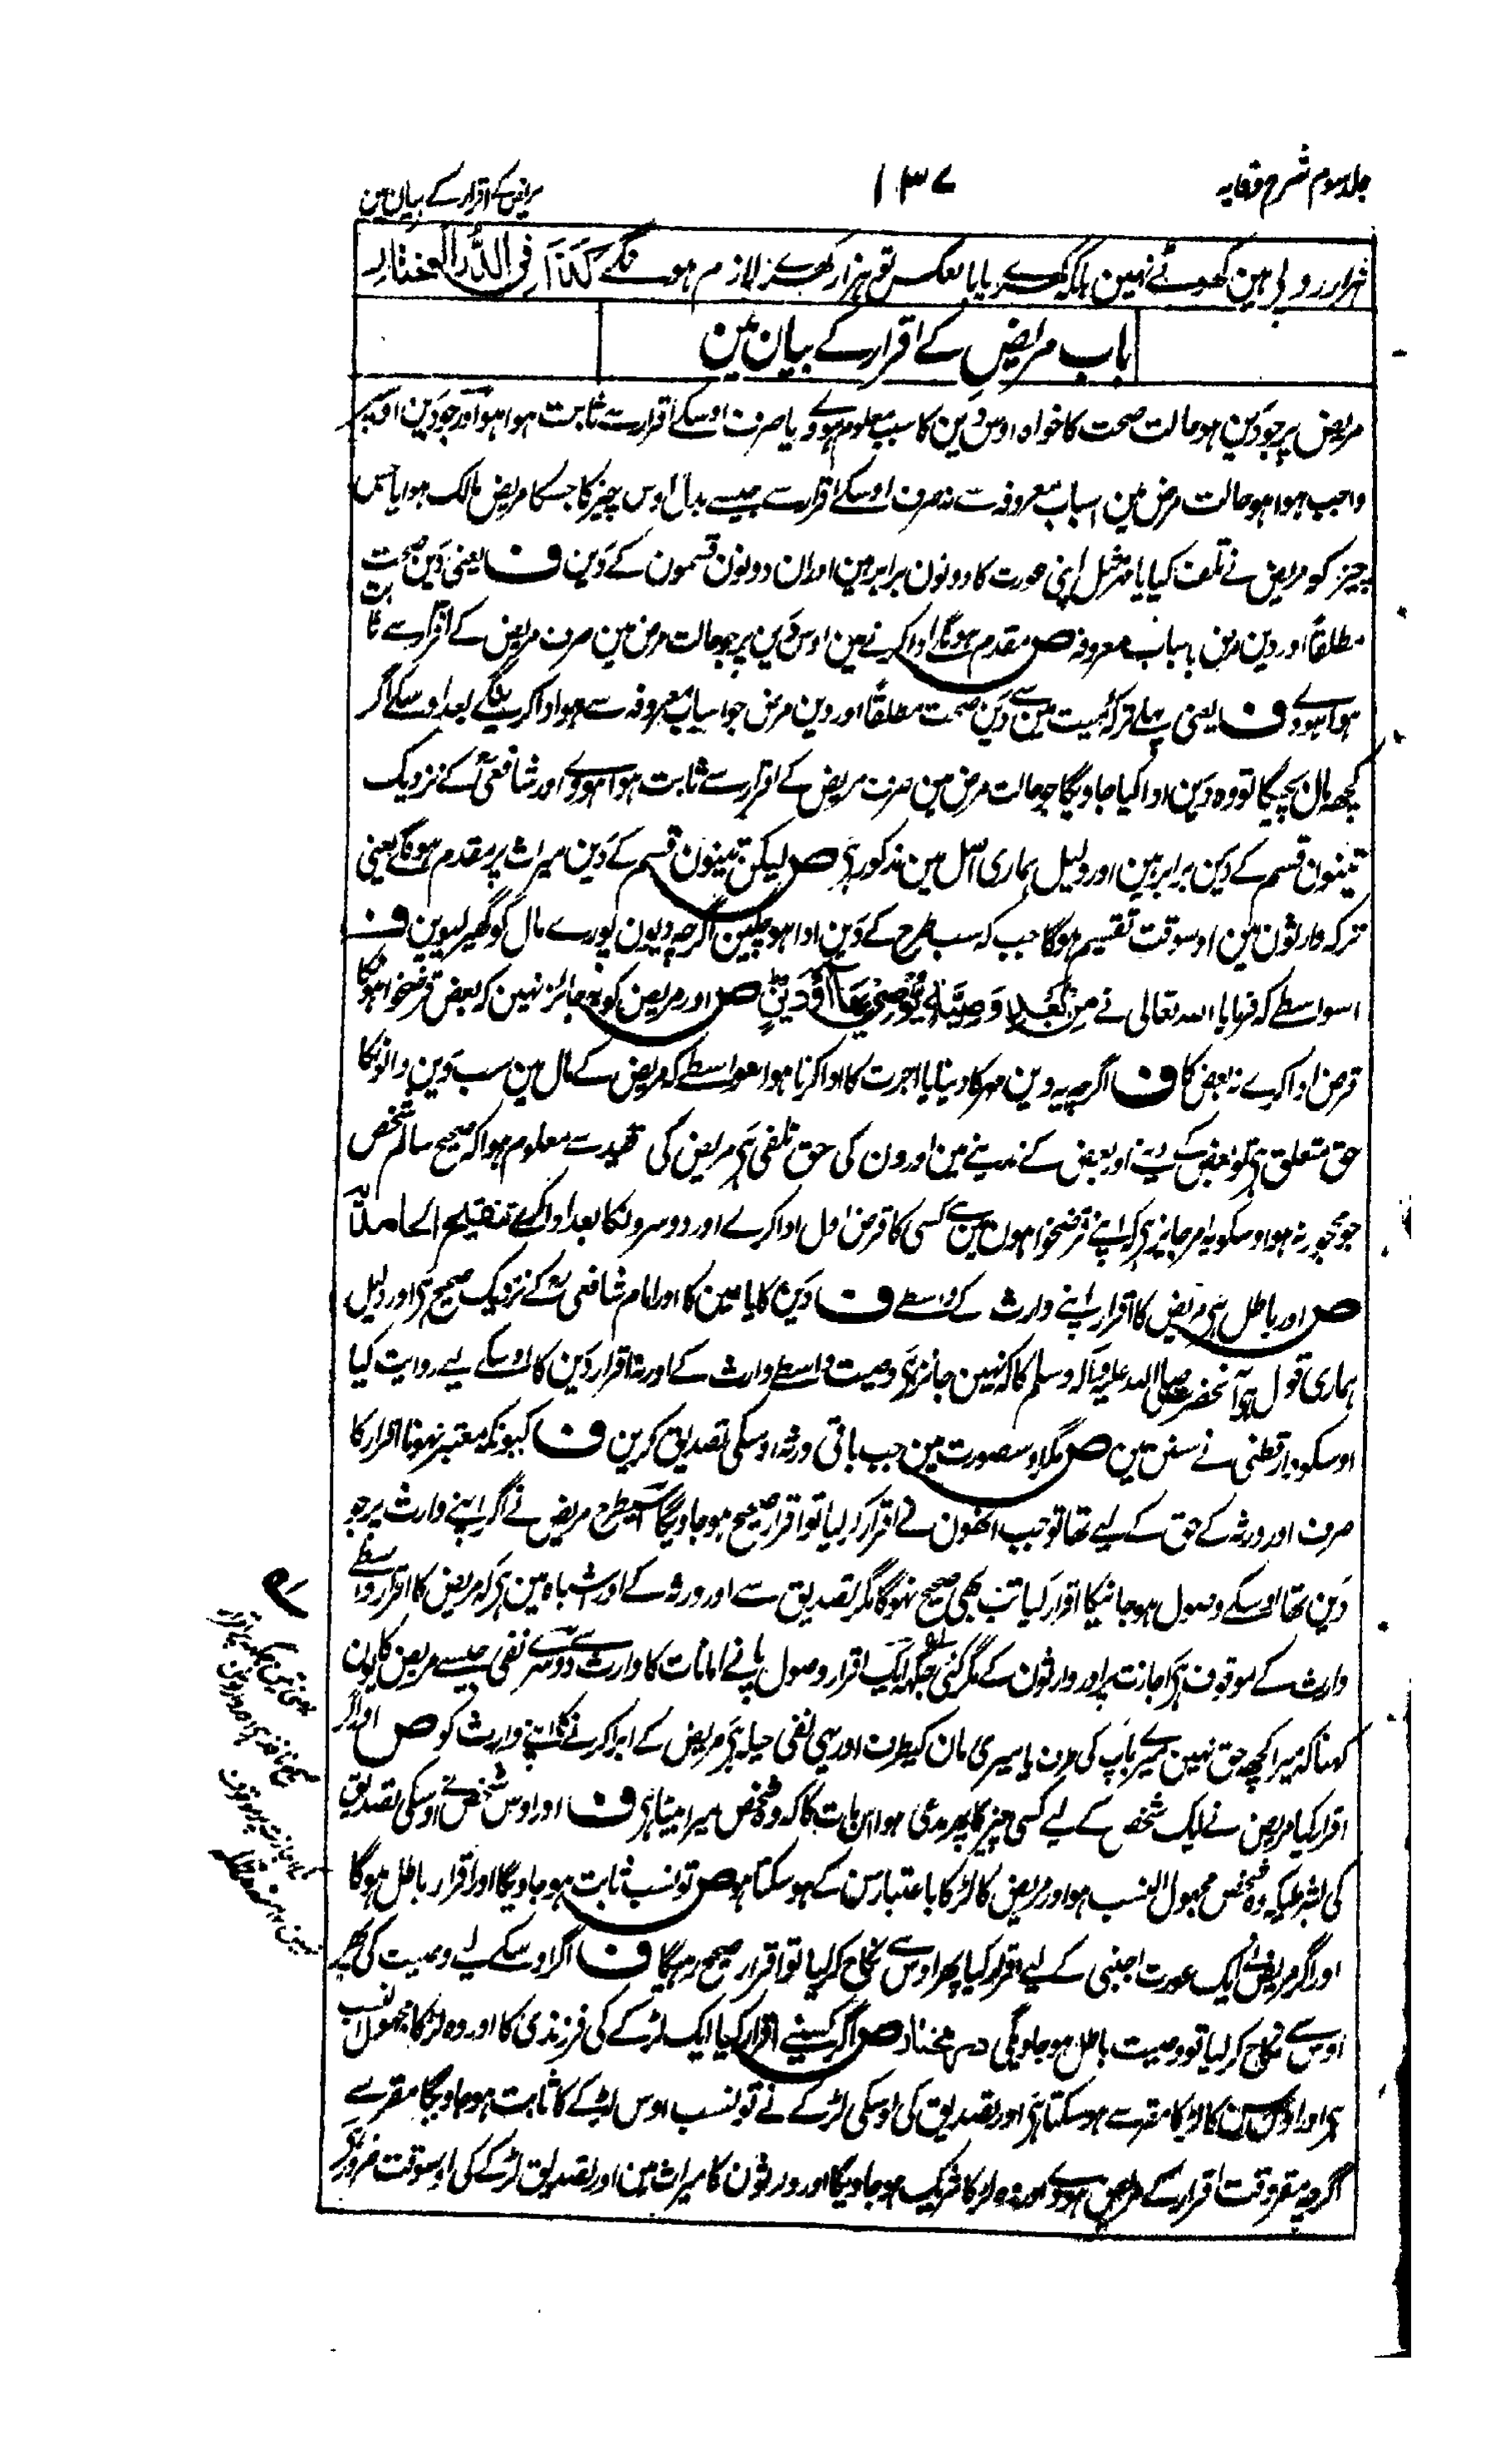 جلد سوم شرح وقایہ
۱۳۷
مریض کے اقرار کے بیان مین
ہزار روپی ہین کھوٹے نہین بلکہ کھرے یا بالعکس تو ہزار کھرے لازم ہونگے کَذَا فِی الدُّرِّ الْمُخْتَارِ
باب مریض کے اقرار کے بیان مین
مریض پر جو دَین ہو حالت صحت کا خواہ اوس دَین کا سبب معلوم ہووے یا صرف اوسکے اقرار سے ثابت ہوا ہو اور جو دَین اوسپر
واجب ہوا ہو حالت مرض مین اسباب معروفہ سے نہ صرف اوسکے اقرار سے جیسے بدل اوس چیز کا جسکا مریض مالک ہوا یا جس
چیز کو مریض نے تلف کیا یا مہر مثل اپنی عورت کا دونون برابر ہین اور ان دونون قسمون کے دَین ف یعنی دَین صحت
مطلقًا اور دین مرض باسباب معروفہ ص مقدم ہونگے ادا کرنے مین اوس دَین پر جو حالت مرض مین صرف مریض کے اقرار سے ثابت
ہوا ہووے ف یعنی پہلے ترکہ میت مین سے دَین صحت مطلقًا اور دین مرض جو اسباب معروفہ سے ہو ادا کرینگے بعد اوسکے اگر
کچھ مال بچیگا تو وہ دَین ادا کیا جاویگا جو حالت مرض مین صرف مریض کے اقرار سے ثابت ہوا ہووے اور شافعی کے نزدیک
تینون قسم کے دَین برابر ہین اور دلیل ہماری اصل مین مذکور ہی ص لیکن تینون قسم کے دَین میراث پر مقدم ہونگے یعنی
ترکہ وارثون مین اوسوقت تقسیم ہوگا جب کہ سب طرح کے دَین ادا ہو چکین اگرچہ دیون پورے مال کو گھیر لیوین ف
اسواسطے کہ فرمایا اللہ تعالی نے مِنْ بَعْدِ وَصِیَّةٍ یُّوْصِیْ بِهَا أَوْ دَیْنٍ ص اور مریض کو یہ جائز نہین کہ بعض قرضخواہونکا
قرض ادا کرے نہ بعض کا ف اگرچہ یہ دین مہر کا دینا یا اجرت کا ادا کرنا ہو اسواسطے کہ مریض کے مال مین سب دین والونکا
حق متعلق ہی تو بعض کے دینے اور بعض کے ندینے مین اورون کی حق تلفی ہی مریض کی قید سے معلوم ہوا کہ صحیح سالم شخص
جو مجور نہو اوسکو یہ امر جائز ہی کہ اپنے قرضخواہون مین سے کسی کا قرض اول ادا کرے اور دوسرونکا بعد اوسکے تنقیح الحامدیہ
ص اور باطل ہی مریض کا اقرار اپنے وارث کے واسطے ف دَین کا یا عین کا اور امام شافعی کے نزدیک صحیح ہی اور دلیل
ہماری قول ہی آنحضرت صلی اللہ علیہ وآلہ وسلم کا کہ نہین جائز ہی وصیت واسطے وارث کے اور نہ اقرار دَین کا اوسکے لیے روایت کیا
اوسکو دارقطنی نے سنن مین ص مگر اوسصورت مین جب باقی ورثہ اوسکی تصدیق کرین ف کیونکہ معتبر نہونا اقرار کا
صرف اور ورثہ کے حق کے لیے تھا تو جب انھون نے اقرار کر لیا تو اقرار صحیح ہو جاویگا اسیطرح مریض نے اگر اپنے وارث پر جو
دَین تھا اوسکے وصول ہو جانیکا اقرار کیا تب بھی صحیح نہوگا مگر تصدیق سے اور ورثہ کے اور اشباہ مین ہی کہ مریض کا اقرار واسطے
وارث کے موقوف ہی اجازت پر اور وارثون کے مگر کئی جگہ ایک اقرار وصول پانے امانات کا وارث سے دوسرے نفی جیسے مریض کا یون
کہنا کہ میرا کچھ حق نہین میرے باپ کی طرف یا میری مان کیطرف اور یہی نفی حیلہ ہی مریض کے ابرا کرنے کا اپنے وارث کو ص اور اگر
اقرار کیا مریض نے ایک شخص کے لیے کسی چیز کا پھر مدعی ہوا اس بات کا کہ وہ شخص میرا بیٹا ہی ف اور اوس شخص نے اوسکی تصدیق
کی بشرطیکہ وہ شخص مجہول النسب ہو اور مریض کا لڑکا باعتبار سن کے ہو سکتا ہو ص تو نسب ثابت ہو جاویگا اور اقرار باطل ہوگا
اور اگر مریض نے ایک عورت اجنبی کے لیے اقرار کیا پھر اوس سے نکاح کر لیا تو اقرار صحیح رہیگا ف اگر اوسکے لیے وصیت کی پھر
اوس سے نکاح کر لیا تو وصیت باطل ہو جاویگی در مختار ص اگر کسینے اقرار کیا ایک لڑکے کی فرزندی کا اور وہ لڑکا مجہول النسب
ہی اور اوس سن کا لڑکا مقر سے ہو سکتا ہی اور تصدیق کی اوسکی لڑکے نے تو نسب اوس لڑکے کا ثابت ہو جاویگا مقر سے
اگرچہ مقر وقت اقرار کے مریض ہووے اور وہ لڑکا شریک ہو جاویگا اور وارثون کا میراث مین اور تصدیق لڑکے کی اوسوقت ضرور ہی